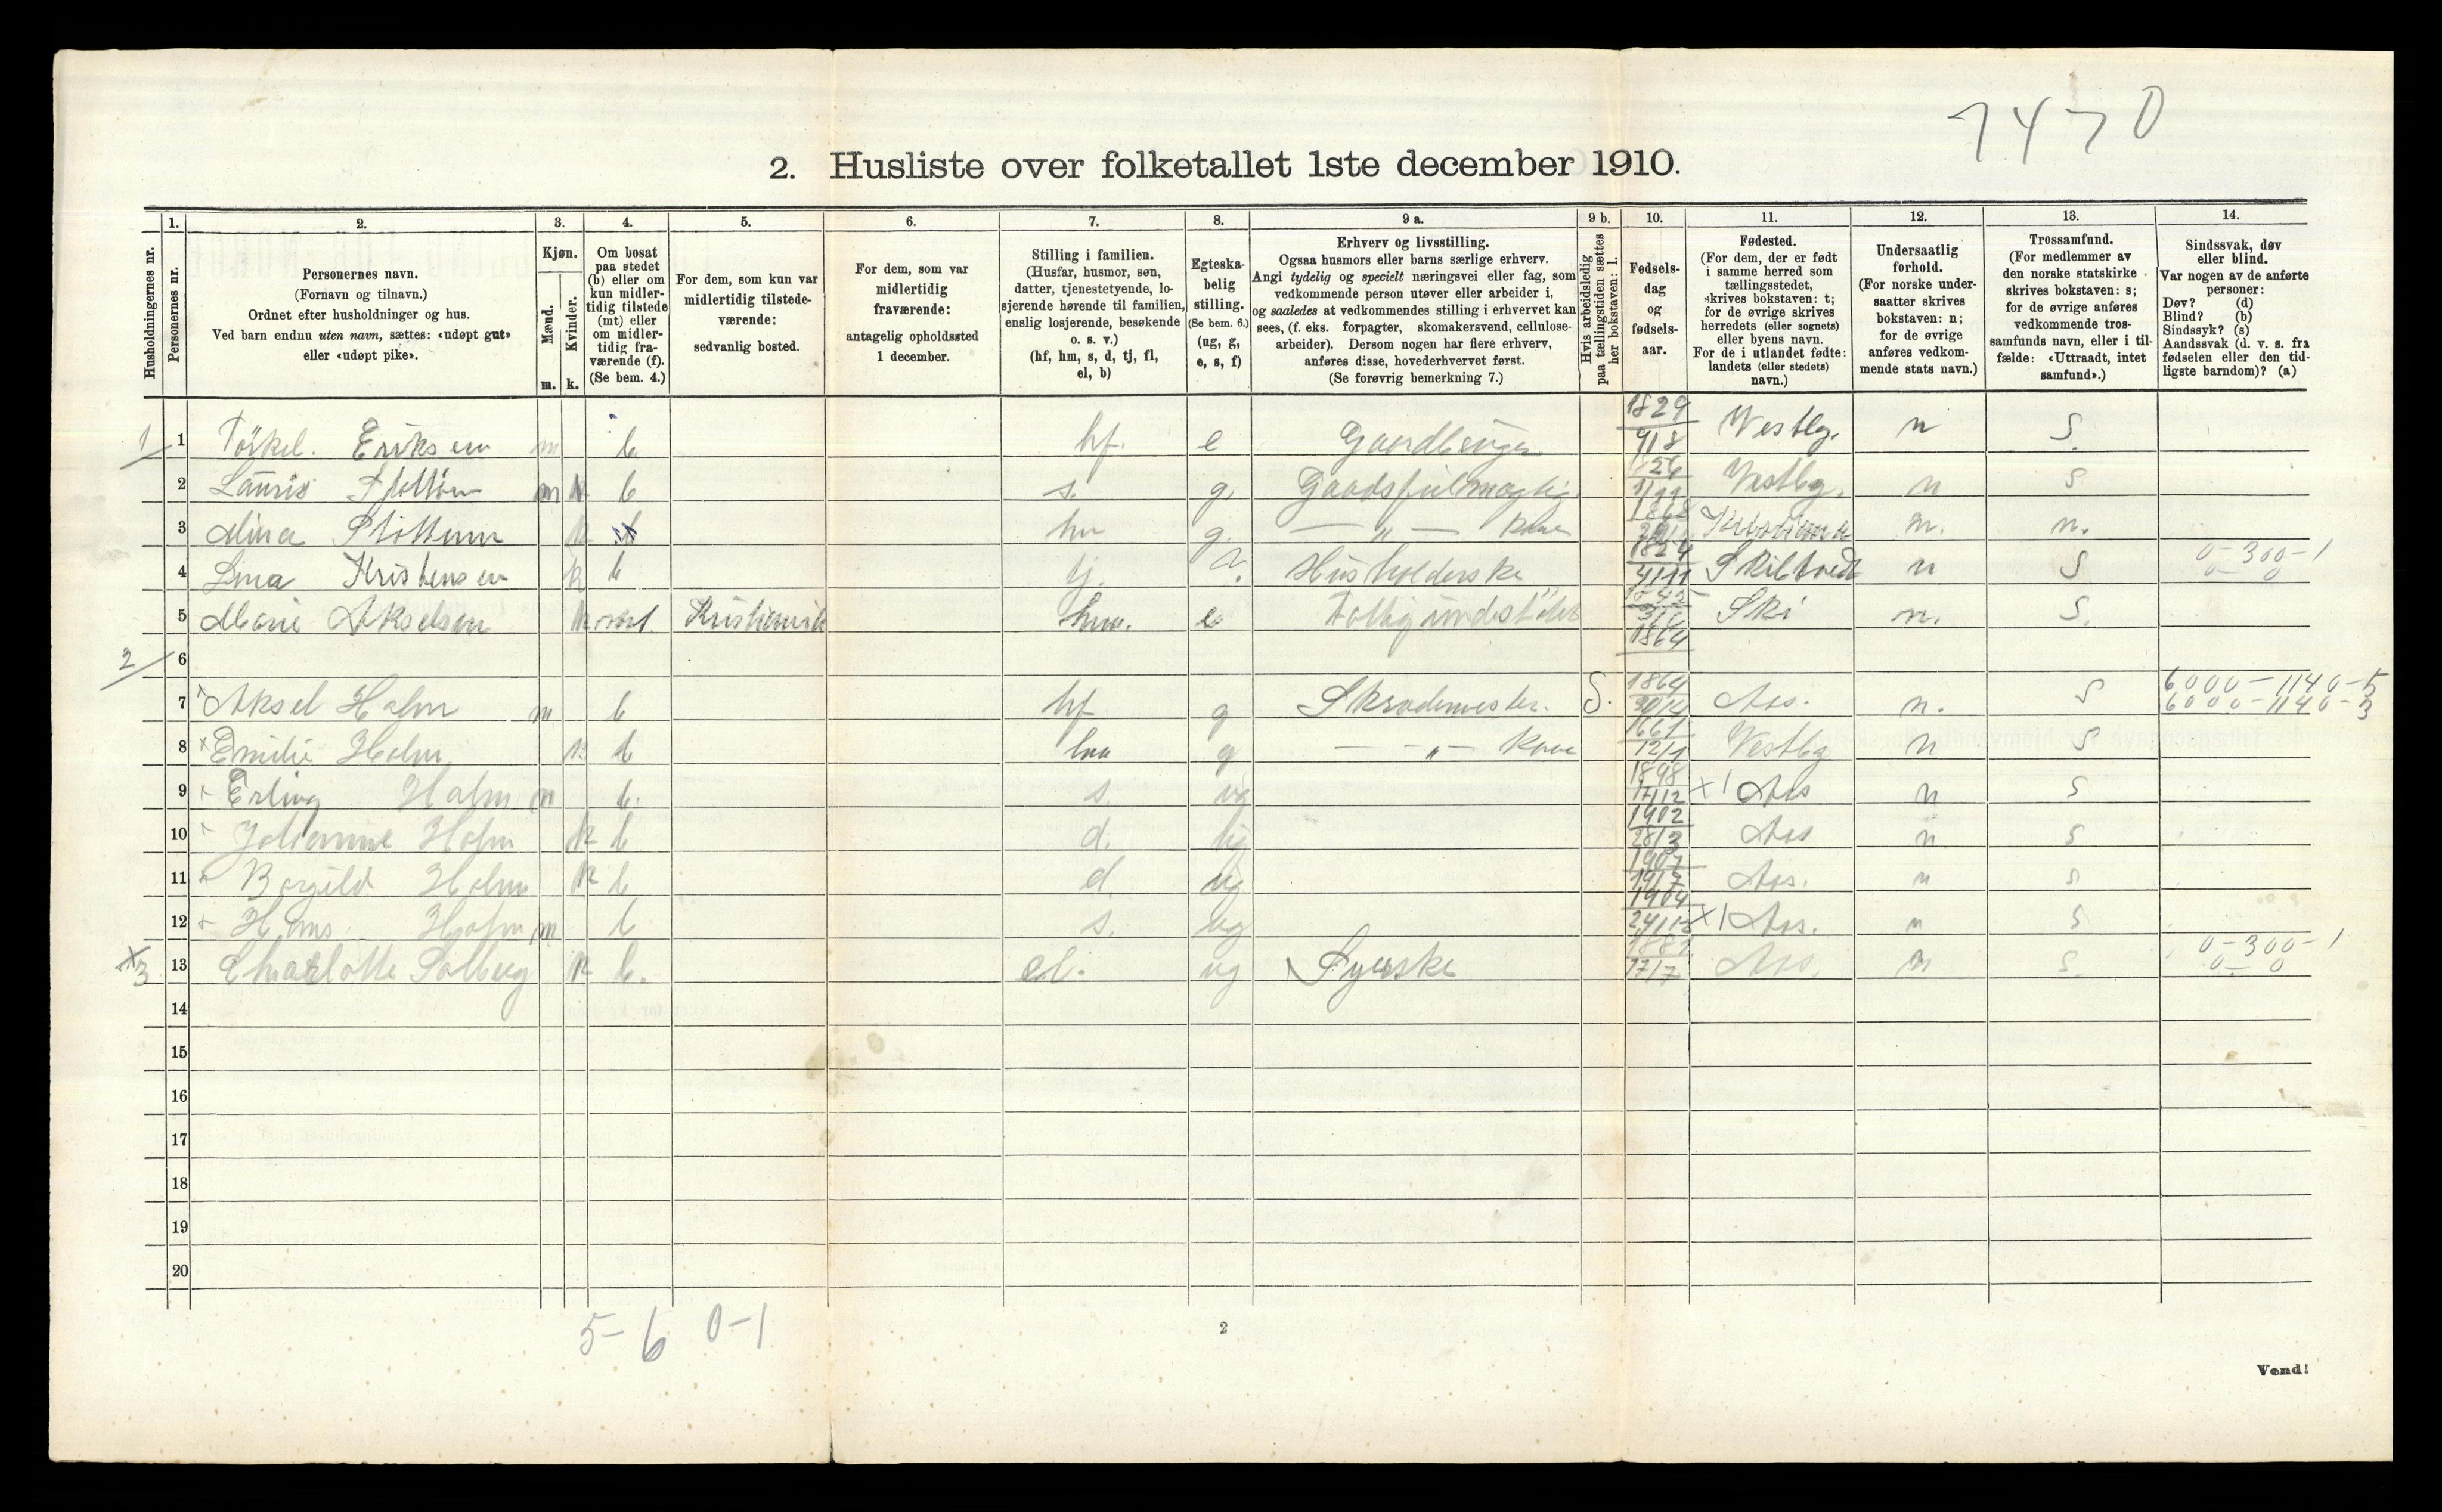 7470
2. Husliste over folketallet 1ste december 1910.
1. 2. 3. 4. 5. 6. 7. 8. 9 a. 9 b. 10. 11. 12. 13. 14.
Husholdningernes nr.
Personernes nr.
Personernes navn.
(Fornavn og tilnavn.)
Ordnet efter husholdninger og hus.
Ved barn endnu uten navn, sættes: «udøpt gut»
eller «udøpt pike».
Kjøn.
Mænd.
Kvinder.
m. k.
Om bosat
paa stedet
(b) eller om
kun midler-
tidig tilstede
(mt) eller
om midler-
tidig fra-
værende (f).
(Se bem. 4.)
For dem, som kun var
midlertidig tilstede-
værende:
sedvanlig bosted.
For dem, som var
midlertidig
fraværende:
antagelig opholdssted
1 december.
Stilling i familien.
(Husfar, husmor, søn,
datter, tjenestetyende, lo-
sjerende hørende til familien,
enslig losjerende, besøkende
o. s. v.)
(hf, hm, s, d, tj, fl,
el, b)
Egteska-
belig
stilling.
(Se bem. 6.)
(ug, g,
e, s, f)
Erhverv og livsstilling.
Ogsaa husmors eller barns særlige erhverv.
Angi tydelig og specielt næringsvei eller fag, som
vedkommende person utøver eller arbeider i,
og saaledes at vedkommendes stilling i erhvervet kan
sees, (f. eks. forpagter, skomakersvend, cellulose-
arbeider). Dersom nogen har flere erhverv,
anføres disse, hovederhvervet først.
(Se forøvrig bemerkning 7.)
Hvis arbeidsledig
paa tællingstiden sættes
her bokstaven: l.
Fødsels-
dag
og
fødsels-
aar.
Fødested.
(For dem, der er født
i samme herred som
tællingsstedet,
skrives bokstaven: t;
for de øvrige skrives
herredets (eller sognets)
eller byens navn.
For de i utlandet fødte:
landets (eller stedets)
navn.)
Undersaatlig
forhold.
(For norske under-
saatter skrives
bokstaven: n;
for de øvrige
anføres vedkom-
mende stats navn.)
Trossamfund.
(For medlemmer av
den norske statskirke
skrives bokstaven: s;
for de øvrige anføres
vedkommende tros-
samfunds navn, eller i til-
fælde: «Uttraadt, intet
samfund».)
Sindssvak, døv
eller blind.
Var nogen av de anførte
personer:
Døv? (d)
Blind? (b)
Sindssyk? (s)
Aandssvak (d. v. s. fra
fødselen eller den tid-
ligste barndom)? (a)
1 1 Eriksen m b hf. e 1829 Vestby. n S.
2 m b s. g. Vestby. n S
3 k b g. — „ — Kone n. n.
4 Kristensen k b tj. Husholderske 4/11 n S 0-300-1
5 Marie Akselsen k Kristiania e Ski n. S.
1864
2 6
7 Aksel Holm m b hf g Skrædermester. S. 1864 Aas. n. S 6000-1140-5
6000-1140-3
8 Emilie Holm k b hm g — „ — Kone 12/1 Vestby n S
9 Erling Holm m b. s. ug 1898 17/12 ×1 Aas n S
10 Johanne Holm k b d. ug 1902 28/3 Aas n S
11 Holm k b d. ug 1907 19/7 Aas. n S
12 Hans Holm m b s. ug 1904 24/12 ×1 Aas. n S
×3 13 Charlotte Solberg k b. el. ug Syerske 17/7 Aas. n S. 0-300-1
14
15
16
17
18
19
20
5-6 0-1
2
Vend!